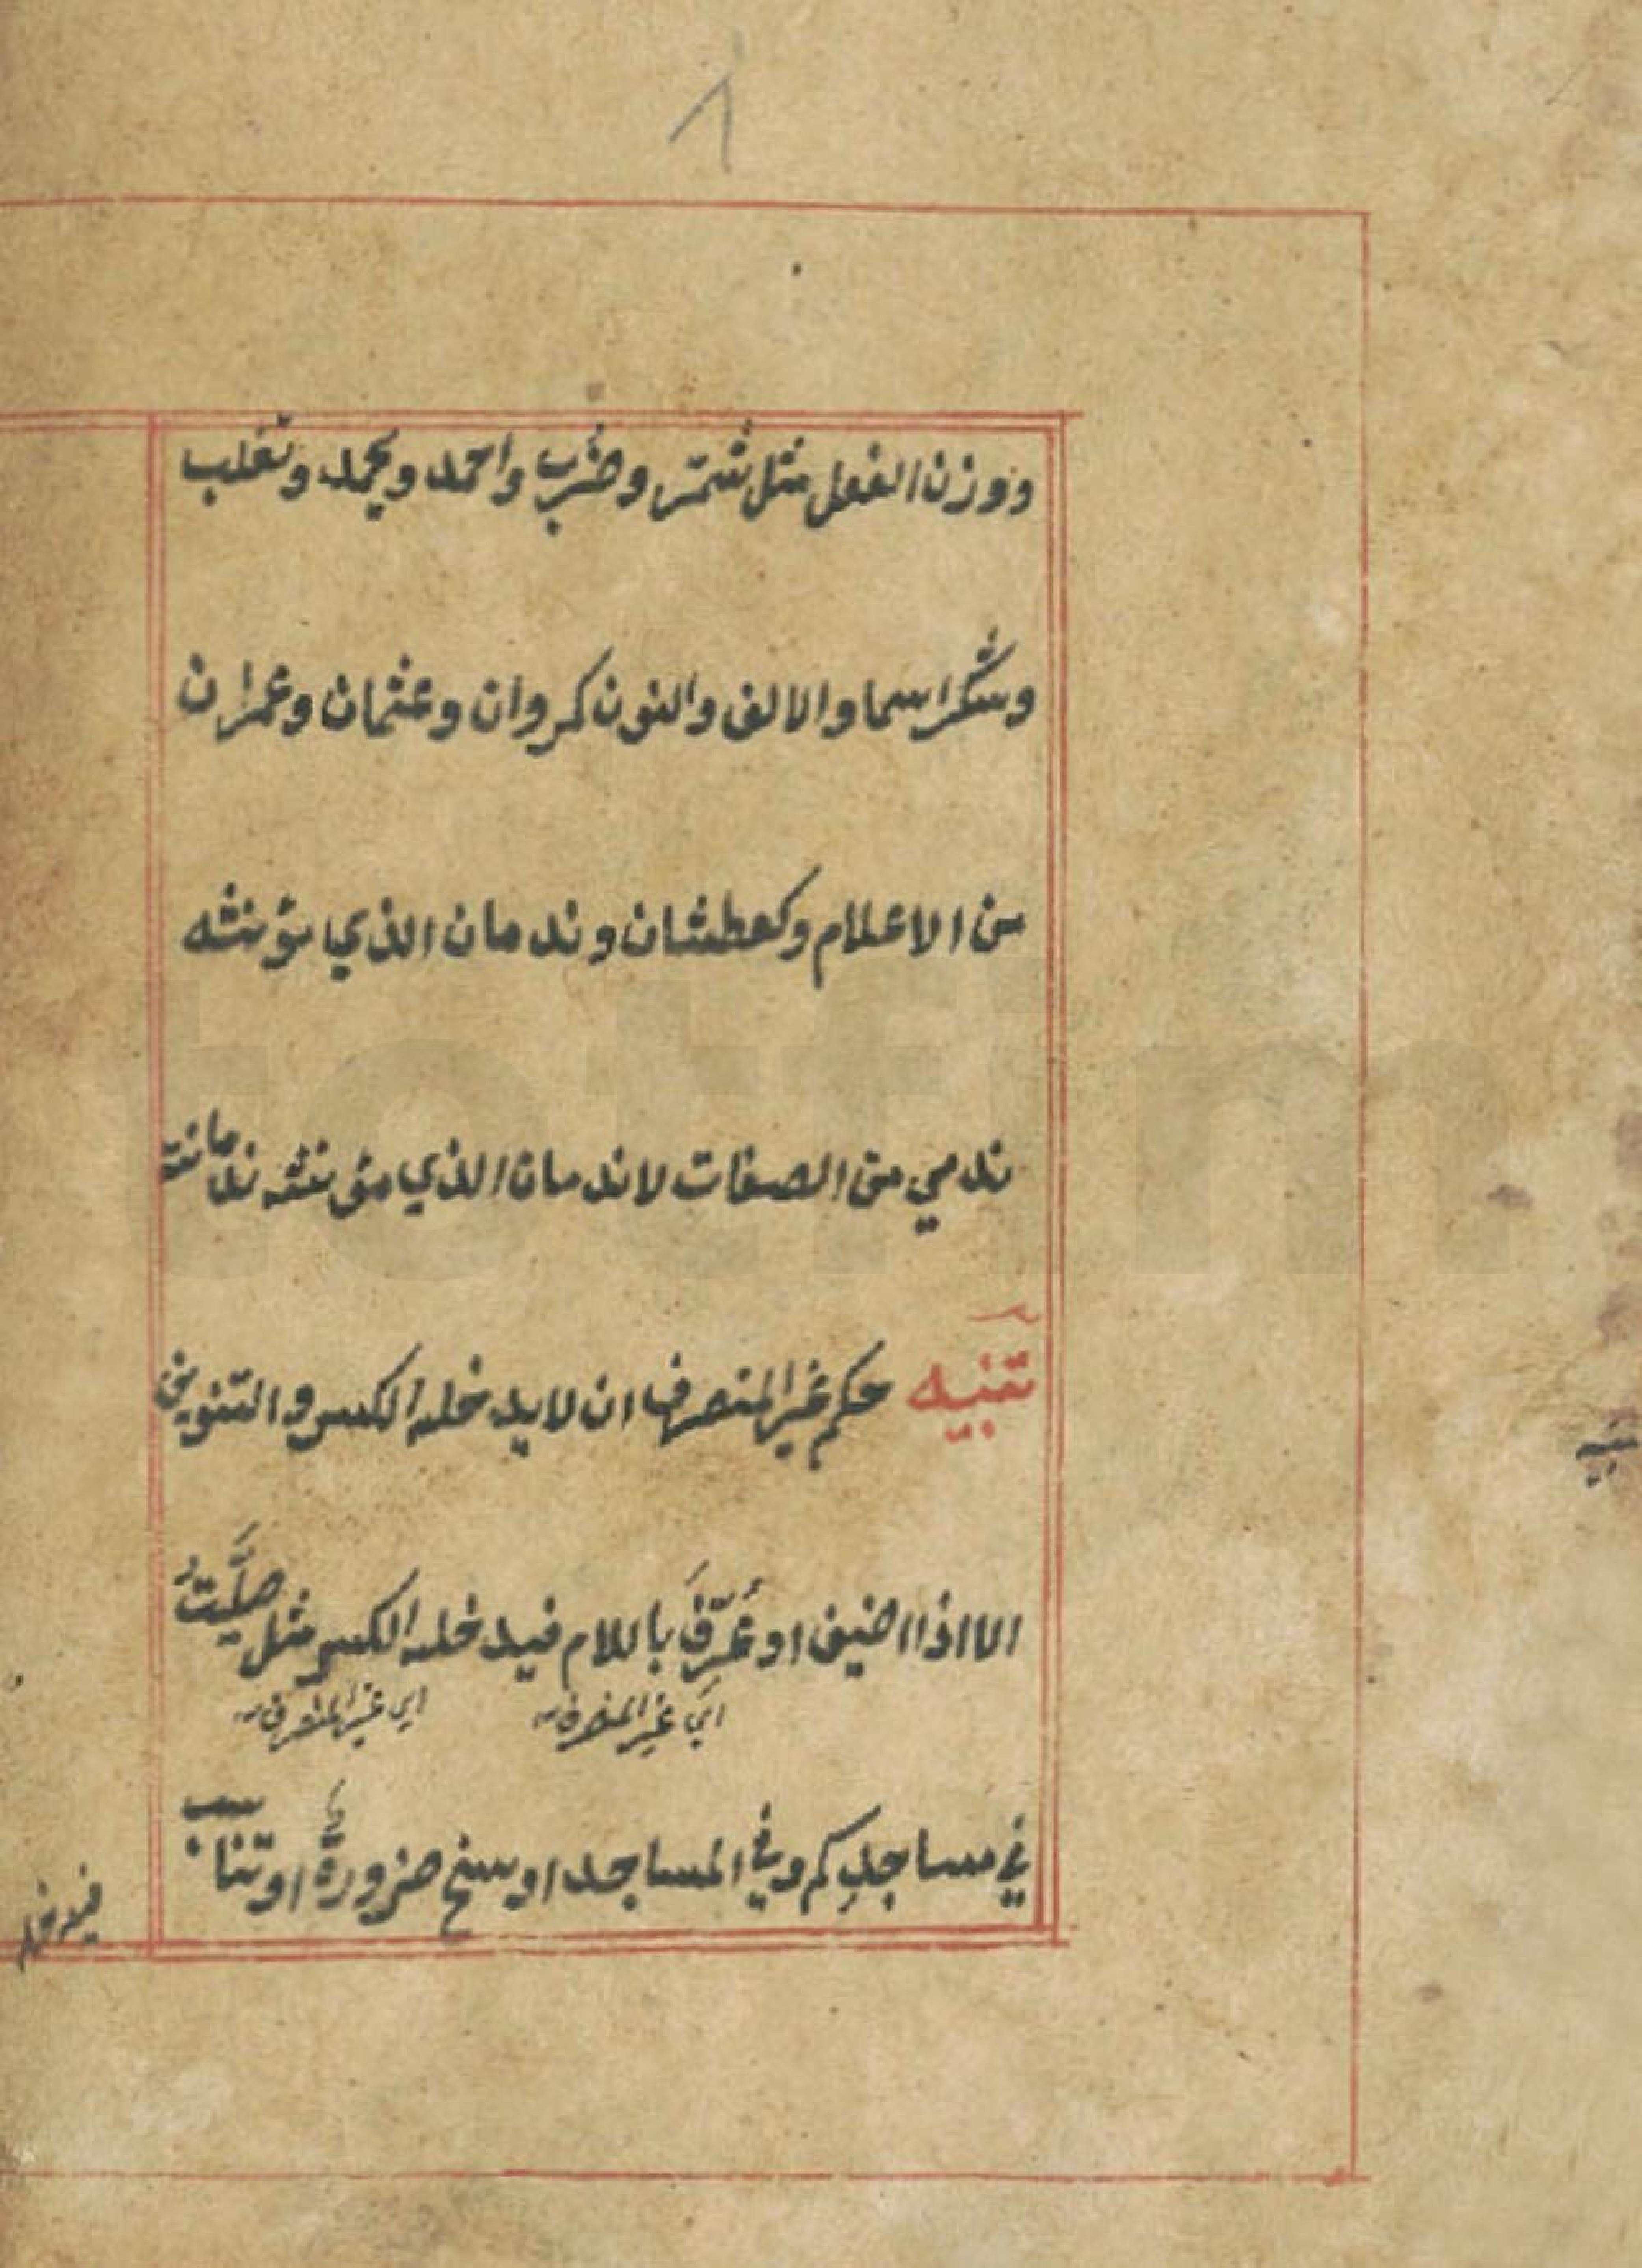 ٦
ووزن الفعل مثل شمّر وضُرب واحمد ويحمد وتغلب
وشكر اسما والالف والنون كمروان وعثمان وعمران
من الاعلام وكعطشان وندمان الذي مؤنثه
ندمي من الصفات لا ندمان الذي مؤنثه ندمانت
تنبيه حكم غير المنصرف ان لا يدخله الكسر والتنوين
الا اذا اضيف او عُرِّفَ باللام فيدخله الكسر مثل صلَّيتُ
اي غير المنصرف اي غير المنصرف
في مساجدِكم وفي المساجد او سنح ضرورةٌ او تناسب
فيدخل